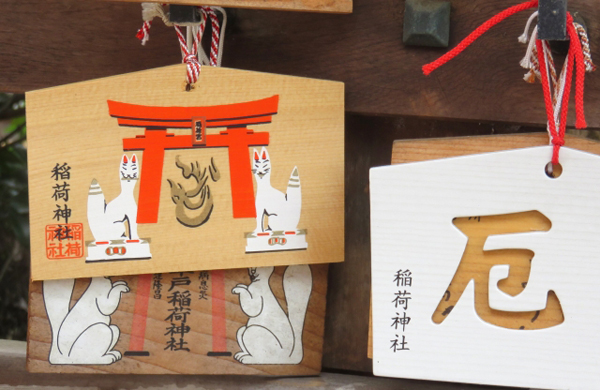 稲荷神社
稲荷
神社
戸稲荷神社
厄
稲荷神社